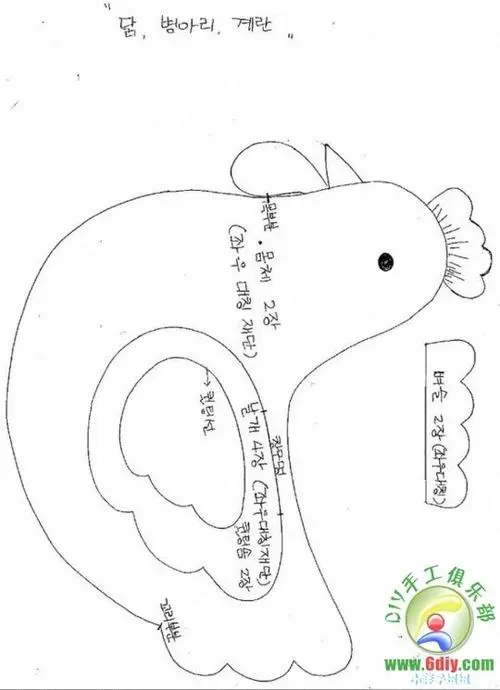 " 닭, 병아리, 계란 "
목부분 · 몸체 2장
(좌우 대칭 재단)
벼슬 2장 (좌우대칭)
→ 퀼팅선
창구멍
날개 4장 (좌우대칭재단)
퀼팅솜 2장
꼬리부분
DIY手工俱乐部
www.6diy.com